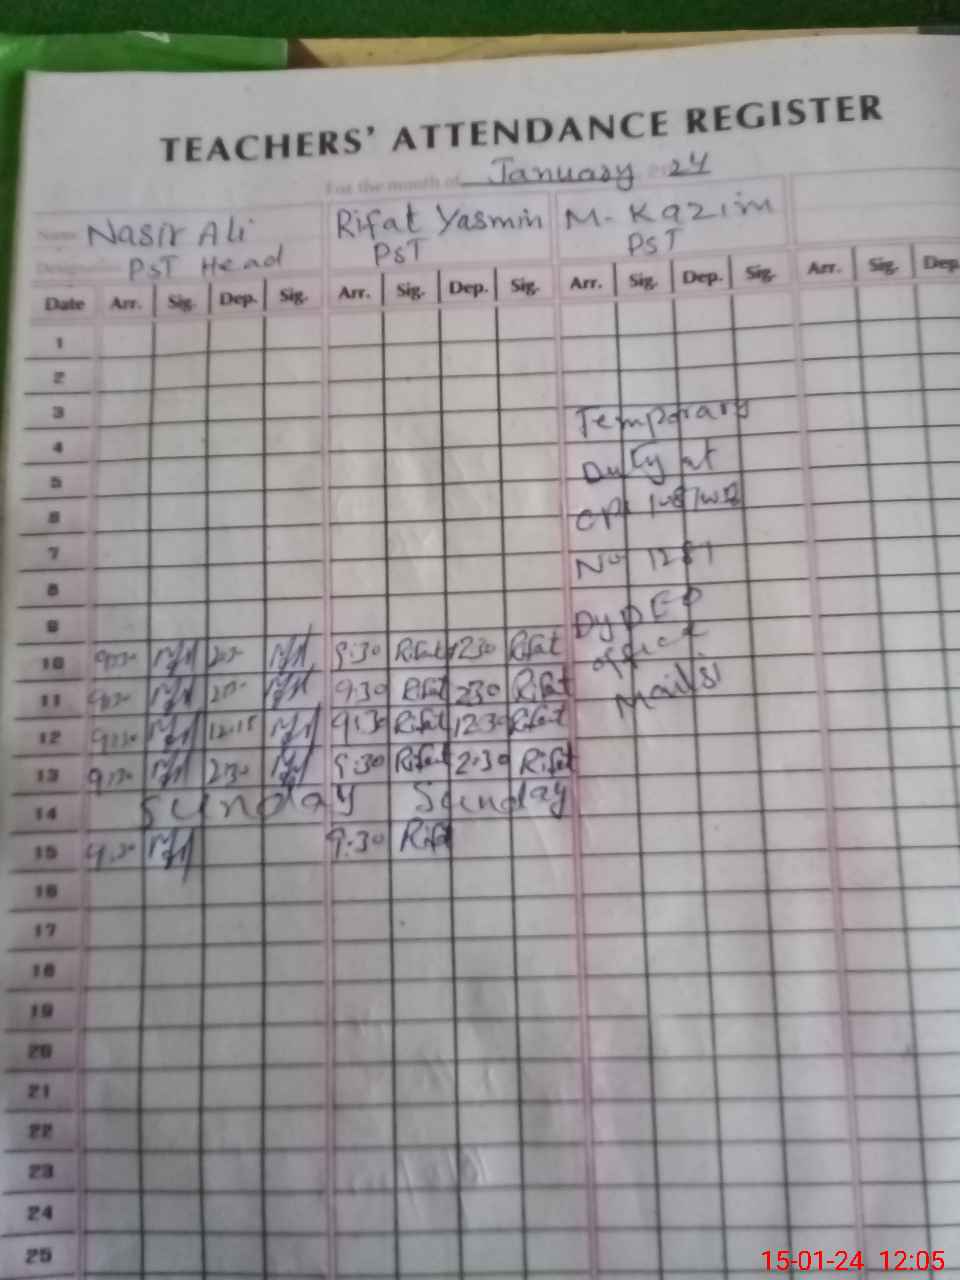 TEACHERS' ATTENDANCE REGISTER
For the month of January 24
Name Nasir Ali Rifat Yasmin M. Kazim
PST Head PST PST
Date Arr. Sig. Dep. Sig. Arr. Sig. Dep. Sig. Arr. Sig. Dep. Sig. Arr. Sig. Dep.
1
2
3 Temporary
4
5 Duty at
6
7 No 1281
8
9 Dy DEO
office
10 9:30 9:30 Rifat 1230 Rifat
11 9:30 230 9:30 Rifat 230 Rifat
Mailsi
12 9:30 12:15 9:30 Rifat 12:30 Rifat
13 9:30 230 9:30 Rifat 2:30 Rifat
14 Sunday Sunday
15 9:30 9:30 Rifat
16
17
18
19
20
21
22
23
24
25
15-01-24 12:05